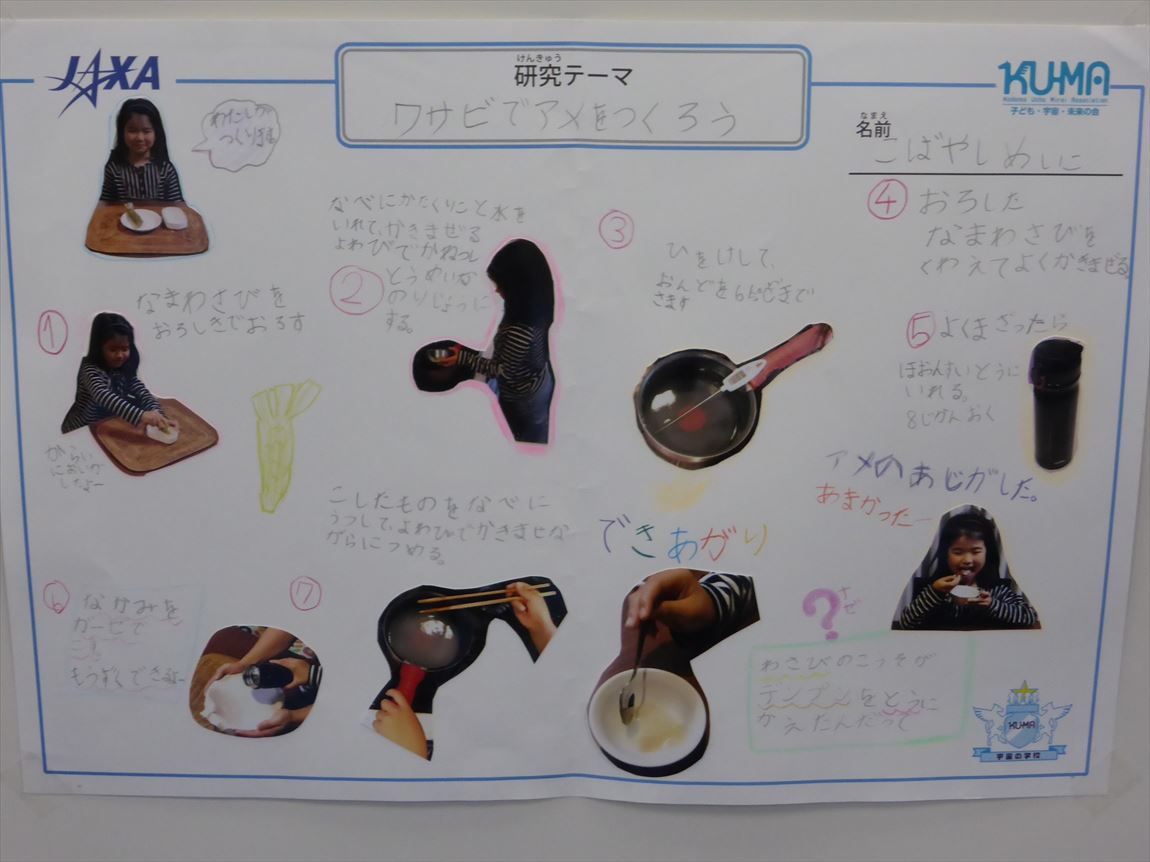 JAXA
けんきゅう
研究テーマ
ワサビでアメをつくろう
KU-MA
Kodomo Uchu Mirai Association
子ども・宇宙・未来の会
なまえ
名前
こばやしめいこ
わたしが
つくり
①
なまわさびを
おろしきでおろす
からい
においが
したよー
②
なべにかたくりこと水を
いれて、かきまぜる
よわびでかねつし
とうめいな
のりじょうに
する。
③
ひをけして、
おんどを65℃ぎで
さます
④
おろした
なまわさびを
くわえてよくかきまぜる
⑤
よくまざったら
ほおんすいとうに
いれる。
8じかんおく
⑥
なかみを
ガーゼで
こし
もうすぐできるよー
⑦
こしたものをなべに
うつして、よわびでかきませな
がらにつめる。
できあがり
アメのあじがした。
あまかったー
?
ナゼ
わさびのこうそが
デンプンをとうに
かえたんだって
KU-MA
宇宙の学校